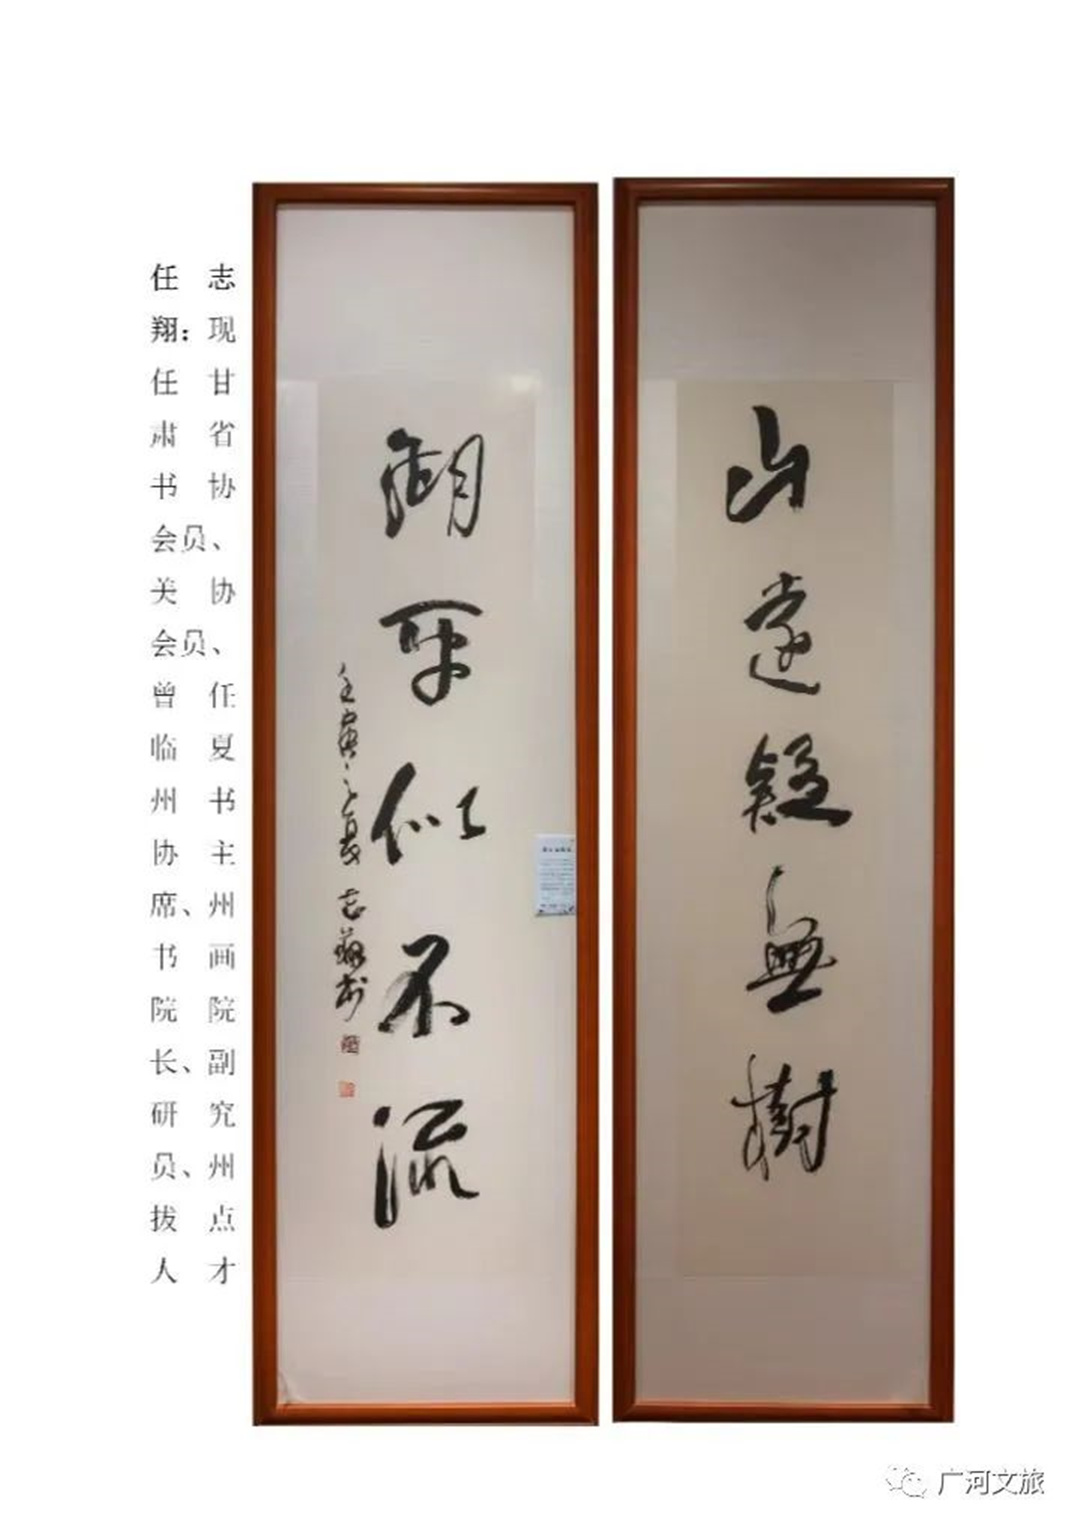 任志
翔：现
任甘
肃省
书协
会员、
美协
会员、
曾任
临夏
州书
协主
席、州
书画
院院
长、副
研究
员、州
拔点
人才
山遠疑無樹
湖平似不流
壬寅之夏志翔书
广河文旅